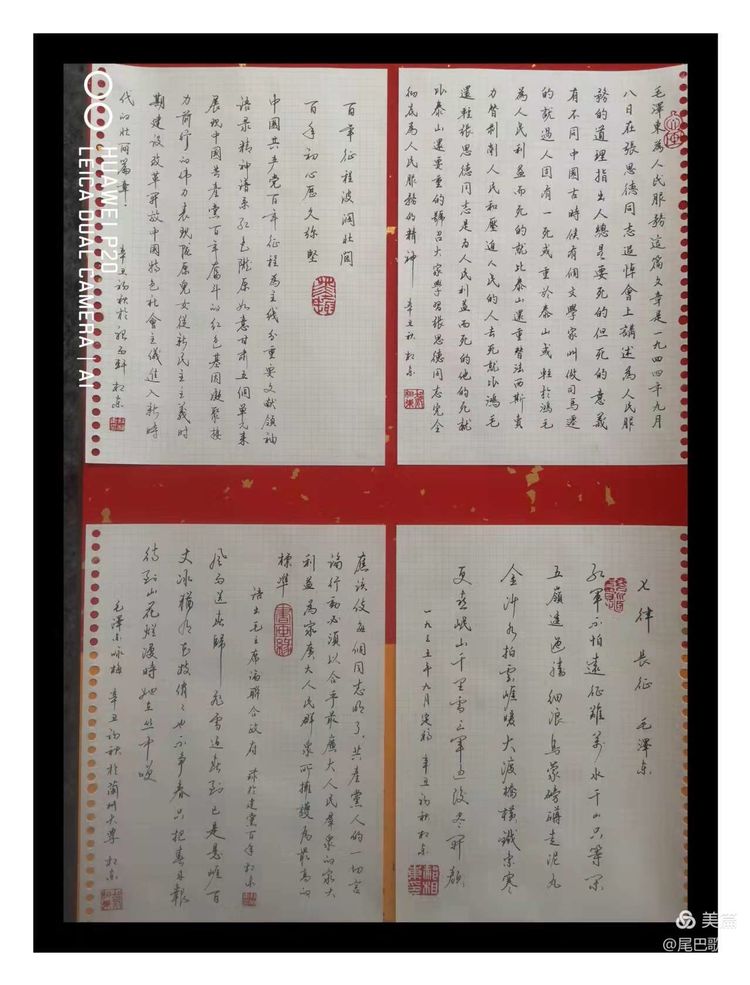 毛澤東為人民服務這篇文章是一九四四年九月
八日在張思德同志追悼會上講述為人民服
務的道理指出人總是要死的但死的意義
有不同中國古時候有個文學家叫做司馬遷
的說過人固有一死或重於泰山或輕於鴻毛
為人民利益而死的就比泰山還重替法西斯賣
力替剝削人民和壓迫人民的人去死就比鴻毛
還輕張思德同志是为人民利益而死的他的死就
比泰山還要重的號召大家學習張思德同志完全
彻底為人民服務的精神 辛丑秋 相东
百年征程波澜壮阔
百年初心歷久弥堅
中國共产党百年征程為主线分重要文献領袖
语录精神谱系红色陇原如意甘肃五個單元来
展现中國共產黨百年奮斗的红色基因凝聚接
力前行的伟力表现陇原兒女從新民主主義时
期建设改革開放中國特色社會主义進入新時
代的壮阔篇章 辛丑初秋於 相东
七律 長征 毛澤东
红軍不怕遠征難萬水千山只等閑
五嶺逶迤騰细浪烏蒙磅礴走泥丸
金沙水拍雲崖暖大渡橋横鐵索寒
更喜岷山千里雪三軍过後尽開顏
一九三五年九月定稿 辛丑初秋相东
應该使每個同志明了共產黨人的一切言
论行動必須以合乎最廣大人民羣衆的最大
利益為最廣大人民群衆所擁護為最高的
標準
语出毛主席论联合政府 錄於建黨百年相东
風雨送春歸 飛雪迎春到已是悬崖百
丈冰猶有花枝俏俏也不争春只把春来報
待到山花爛漫時她在丛中笑
毛澤东咏梅 辛丑初秋於蘭州大學 相东
HUAWEI P20
LEICA DUAL CAMERA | AI
美篇
@尾巴歌